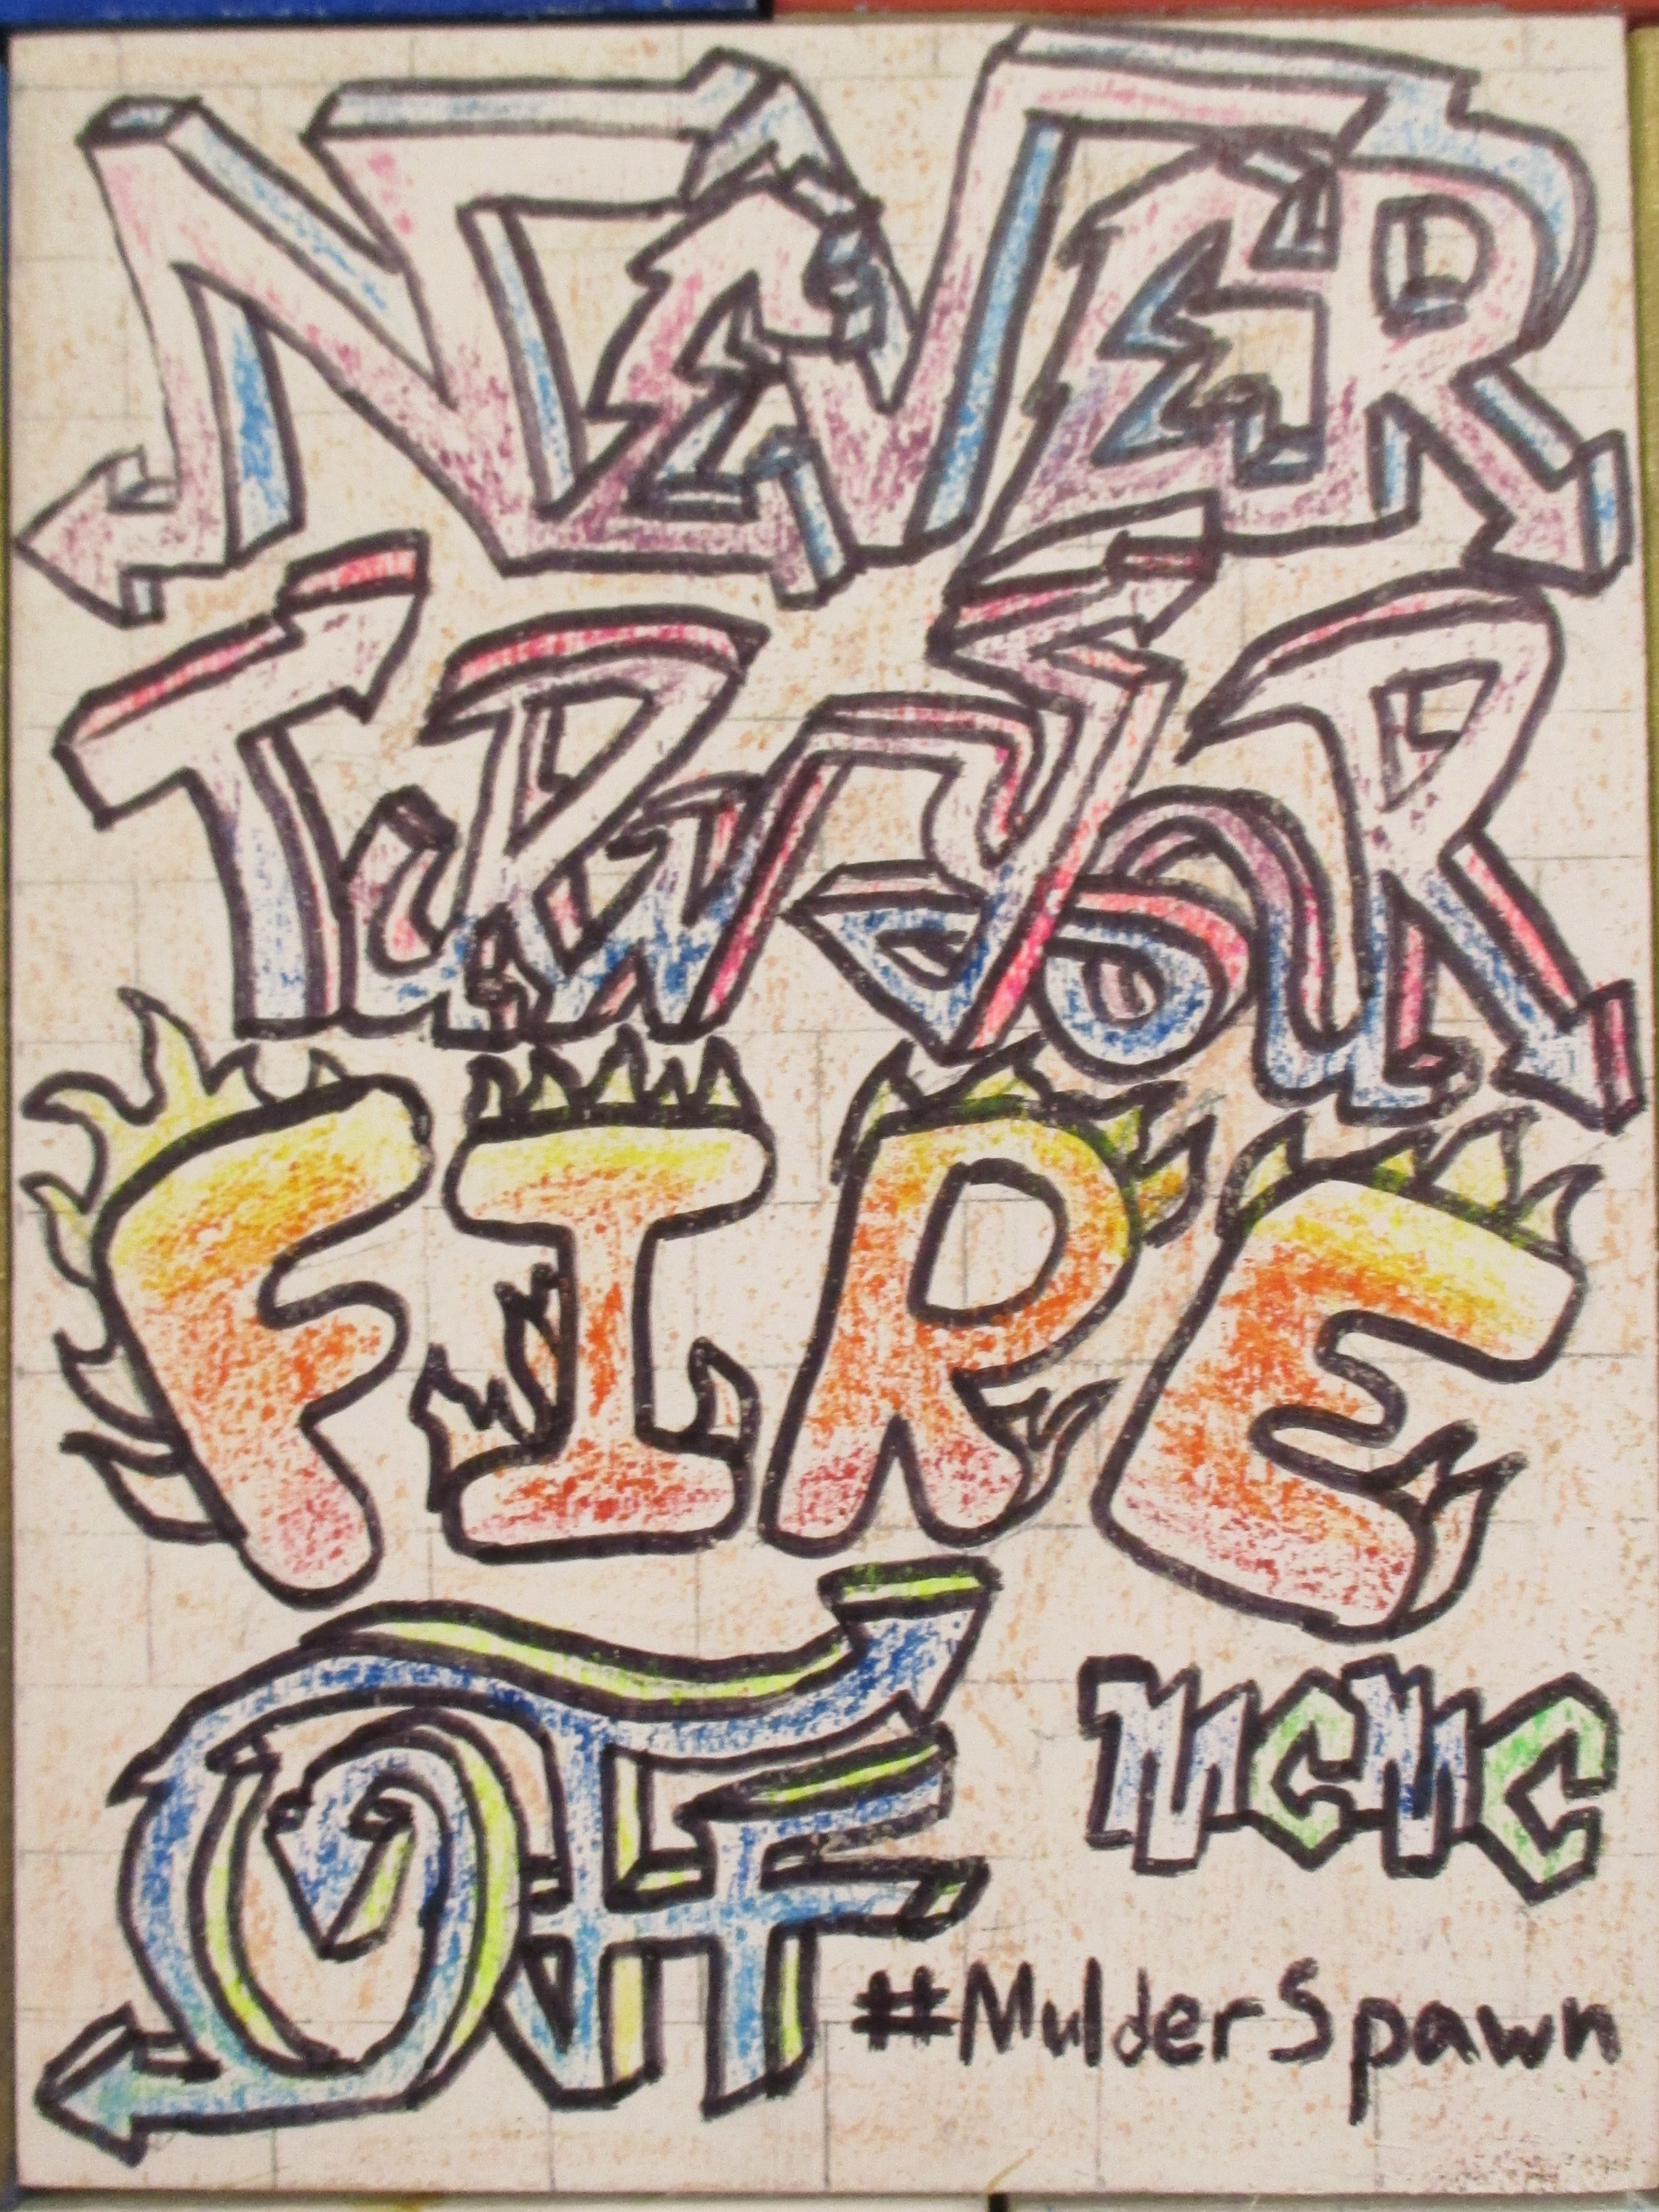 NEVER
TuRN YouR
FIRE
OFF
MCMC
#MulderSpawn